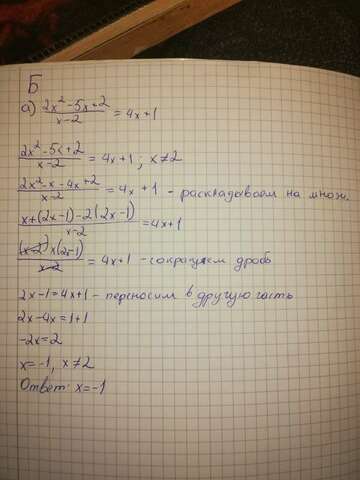 Б
а) (2x²-5x+2)/(x-2) = 4x+1
(2x²-5x+2)/(x-2) = 4x+1; x≠2
(2x²-x-4x+2)/(x-2) = 4x+1 - раскладываем на множ.
(x+(2x-1)-2(2x-1))/(x-2) = 4x+1
((x-2)x(2x-1))/(x-2) = 4x+1 - сокращаем дробь
2x-1=4x+1 - переносим в другую часть
2x-4x=1+1
-2x=2
x=-1, x≠2
Ответ: x=-1